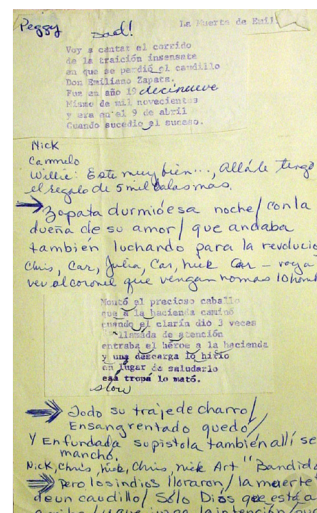 Peggy
Sad!
La Muerte de Emil
Voy a cantar el corrido
de la traición insensata
en que se perdió el caudillo
Don Emiliano Zapata.
Fue en año 19 decinueve
Mismo de mil novecientos
y era que el 9 de abril
Cuando sucedio el suceso.
Nick
Carmelo
Willie: Este muy bien..., Allá le tengo
el regalo de 5 mil balas mas.
Zapata durmió esa noche/ con la
dueña de su amor/ que andaba
también luchando para la revolucio
Chris, Car, Julia, Car, Nick Car - voy a
ver al coronel que vengan nomas 10 hom
Montó el precioso caballo
que a la hacienda caminó
cuando el clarín dio 3 veces
llamada de atención
entraba el héroe a la hacienda
y una descarga lo hirio
en lugar de saludarlo
esa tropa lo mató.
slow
Todo su traje de charro/
Ensangrentado quedó/
Y Enfundada su pistola también allí se
manchó.
Nick, Chris, Nick, Chris, Nick Art "Bandido
Pero los indios lloraron/ la muerte
de un caudillo/ Sólo Dios que está a